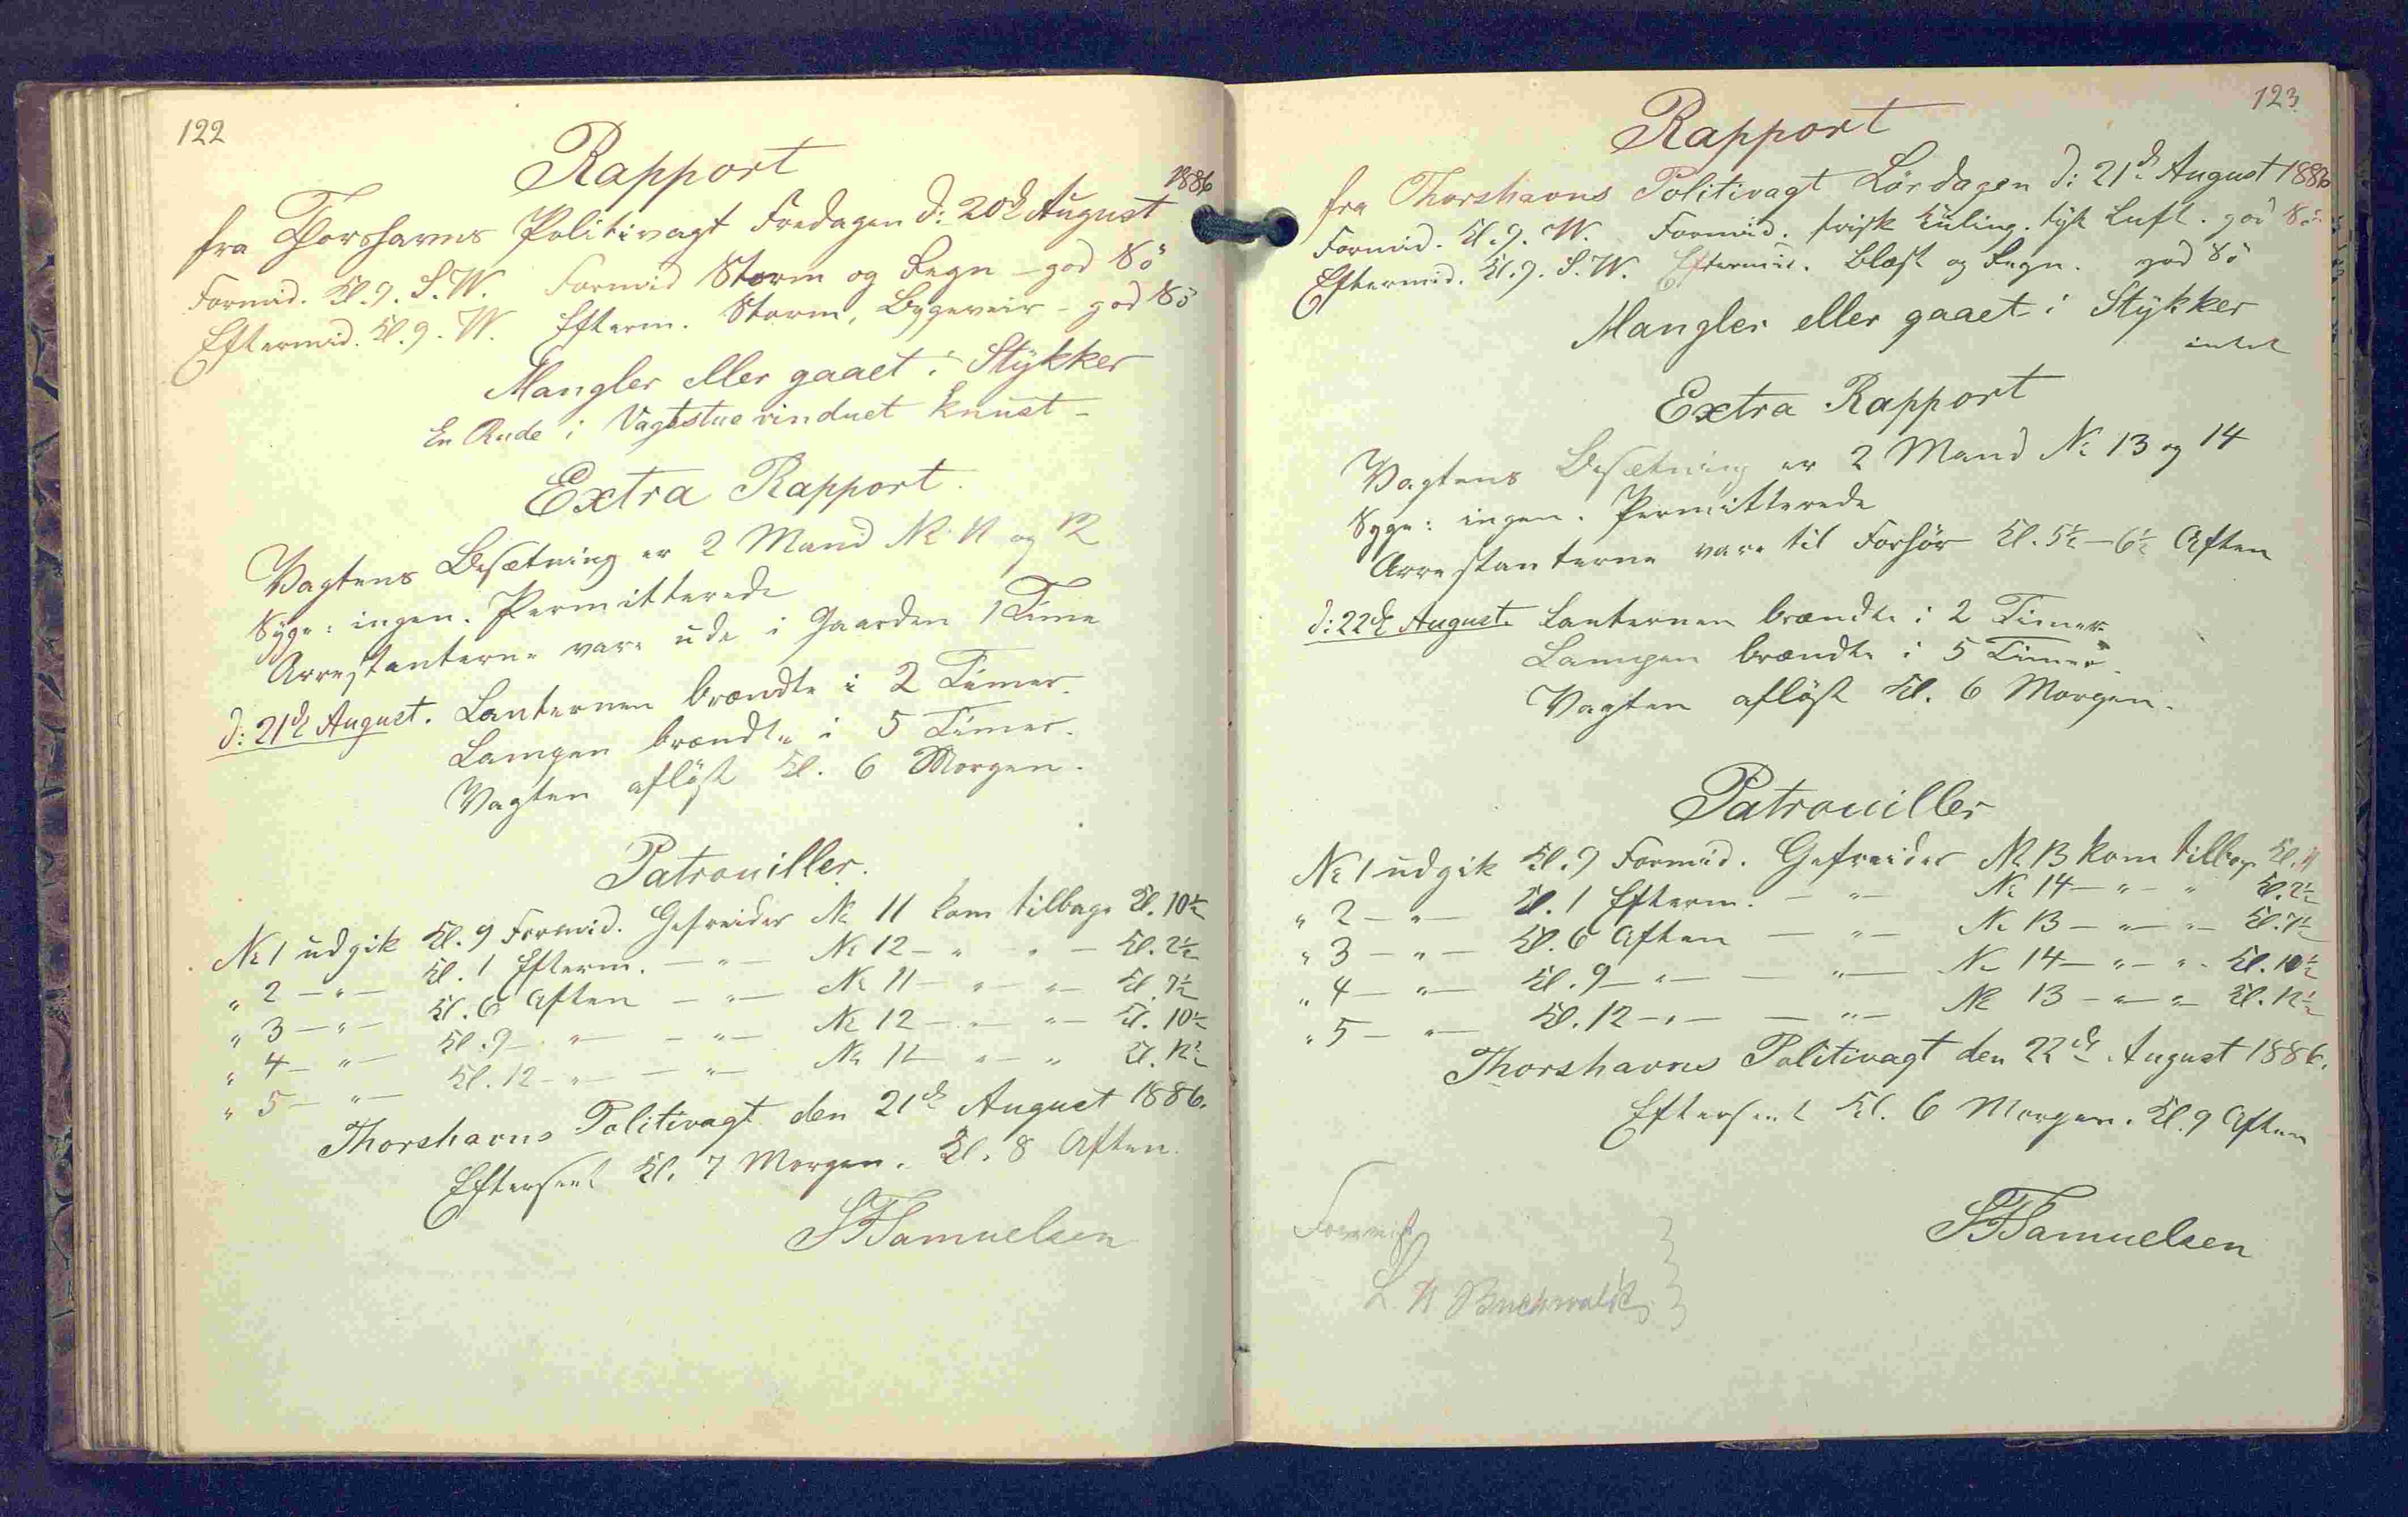 122
Rapport
fra Thorshavns Politivagt Fredagen d: 20de August 1886
Formid. Kl. 9. S.W. Formid Storm og Regn - god Sö
Eftermid. Kl. 9. W. Efterm. Storm, Bygeveir - god Sö
Mangler eller gaaet i Stykker
En Rude i Vagtstuevinduet knust -
Extra Rapport.
Vagtens Besætning er 2 Mand No 11 og 12
Syge: ingen. Permitterede
Arrestanterne vare ude i Gaarden 1 Time
d: 21de August. Lanternen brændte i 2 Timer.
Lampen brændte i 5 Timer.
Vagten aflöst Kl. 6 Morgen.
Patrouiller.
No 1 udgik Kl. 9 Formid. Gefreider No 11 kom tilbage Kl. 10½
" 2 - " - Kl. 1 Efterm. - " - No 12 - " - " - Kl. 2½
" 3 - " - Kl. 6 Aften - " - No 11 - " - " - Kl. 7½
" 4 - " - Kl. 9 - " - - " - No 12 - " - " - Kl. 10½
" 5 - " - Kl. 12 - " - - " - No 11 - " - " Kl. 12½
Thorshavns Politivagt den 21de August 1886.
Efterseet Kl. 7 Morgen. Kl. 8 Aften.
SFSamuelsen
123.
Rapport
fra Thorshavns Politivagt Lördagen d: 21de August 1886
Formid. Kl. 9. W. Formid. frisk Kuling. tyk Luft. god Sö
Eftermid. Kl. 9. S.W. Eftermid. Blæst og Regn. god Sö
Mangler eller gaaet i Stykker
intet
Extra Rapport
Vagtens Besætning er 2 Mand No 13 og 14
Syge: ingen. Permitterede
Arrestanterne vare til Forhör Kl. 5½ - 6½ Aften
d: 22de August. Lanternen brændte i 2 Timer.
Lampen brændte i 5 Timer.
Vagten aflöst Kl. 6 Morgen.
Patrouiller
No 1 udgik Kl. 9 Formid. Gefreider No 13 kom tilbage Kl. 11
" 2 - " - Kl. 1 Efterm. - " - No 14 - " - " Kl. 2½
" 3 - " - Kl. 6 Aften - " - No 13 - " - " - Kl. 7½
" 4 - " - Kl. 9 - " - - " - No 14 - " - " - Kl. 10½
" 5 - " - Kl. 12 - " - - " - No 13 - " - " - Kl. 12½
Thorshavns Politivagt den 22de August 1886.
Efterseet Kl. 6 Morgen. Kl. 9 Aften
SFSamuelsen
Buchwaldt